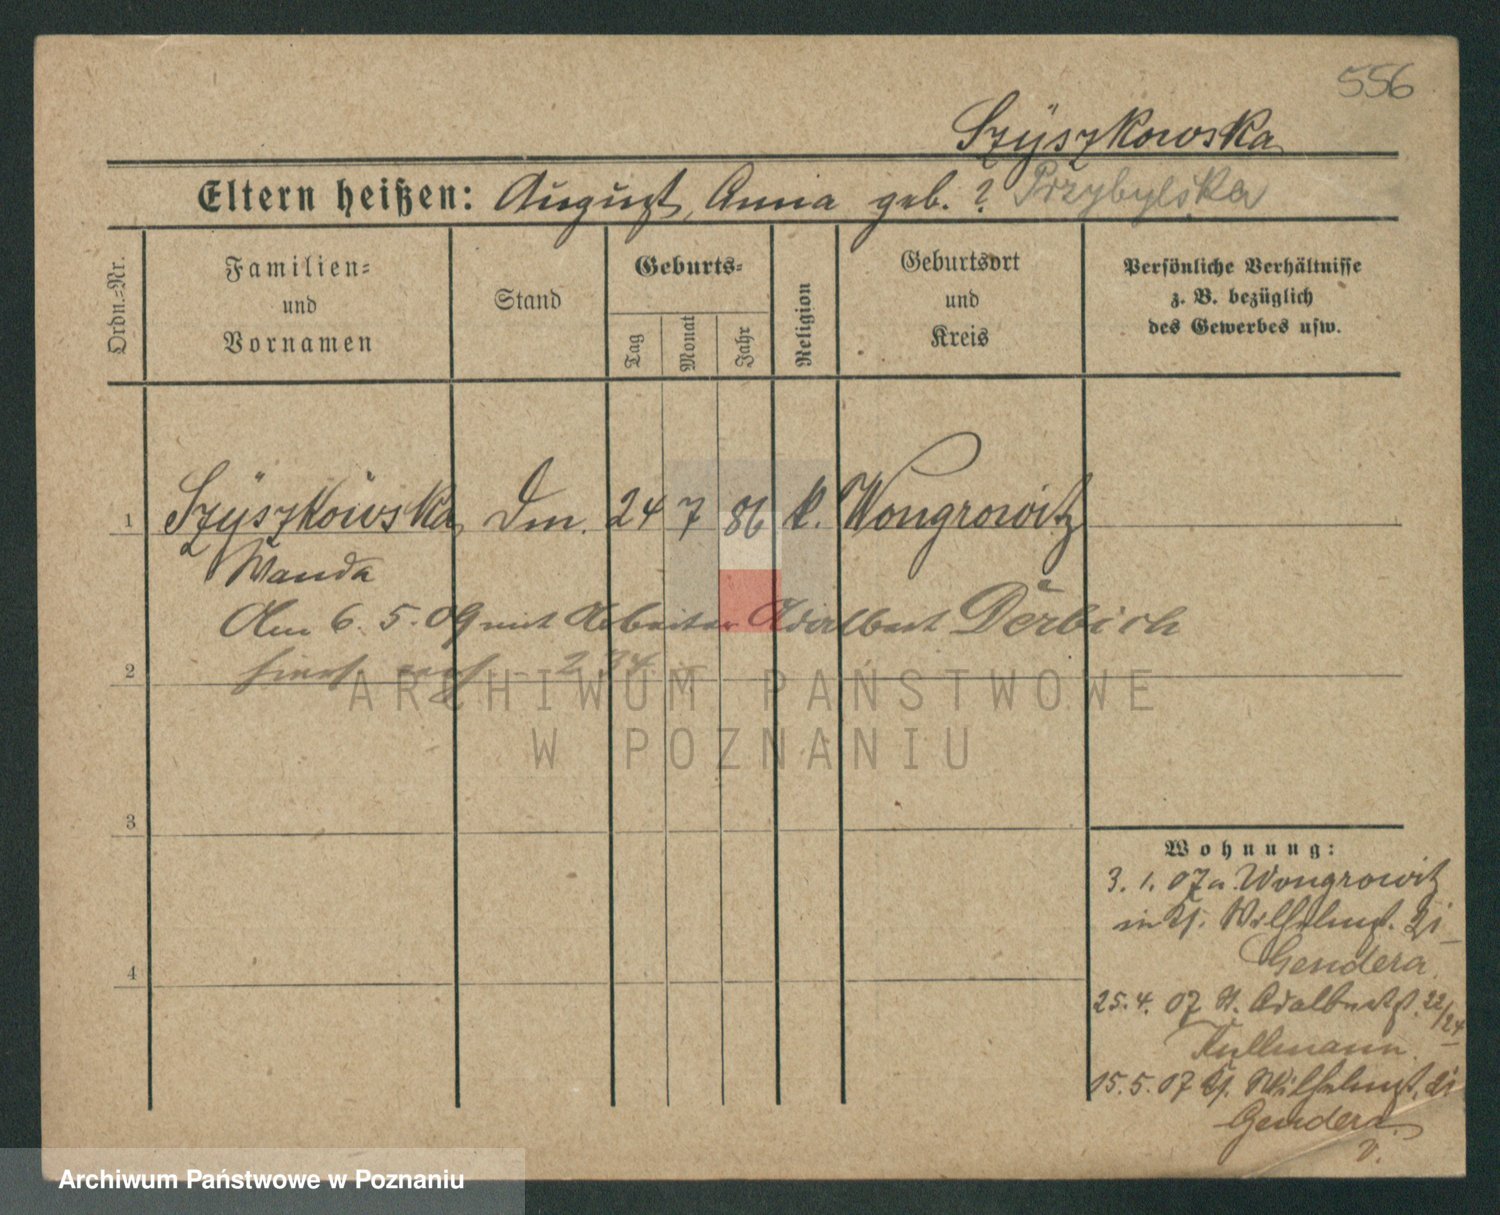 556
Szÿszkowska
Eltern heißen: August, Anna geb. ? Przybylska
Ordn.-Nr.
Familien-
und
Vornamen
Stand
Geburts-
Tag
Monat
Jahr
Religion
Geburtsort
und
Kreis
Persönliche Verhältnisse
z. B. bezüglich
des Gewerbes usw.
1 Szÿszkowska Dm. 24 7 86 k. Wongrowitz
Wanda
Am 6. 5. 09 mit Arbeiter Adalbert Derbich
2
3
4
Wohnung:
3. 1. 07 a. Wongrowitz
in Kl. Wilhelmst.
Gendera
25. 4. 07 St. Adalbertst. 22/24
Kullmann
15. 5. 07 Kl. Wilhelmst.
Gendera
v.
ARCHIWUM PAŃSTWOWE
W POZNANIU
Archiwum Państwowe w Poznaniu